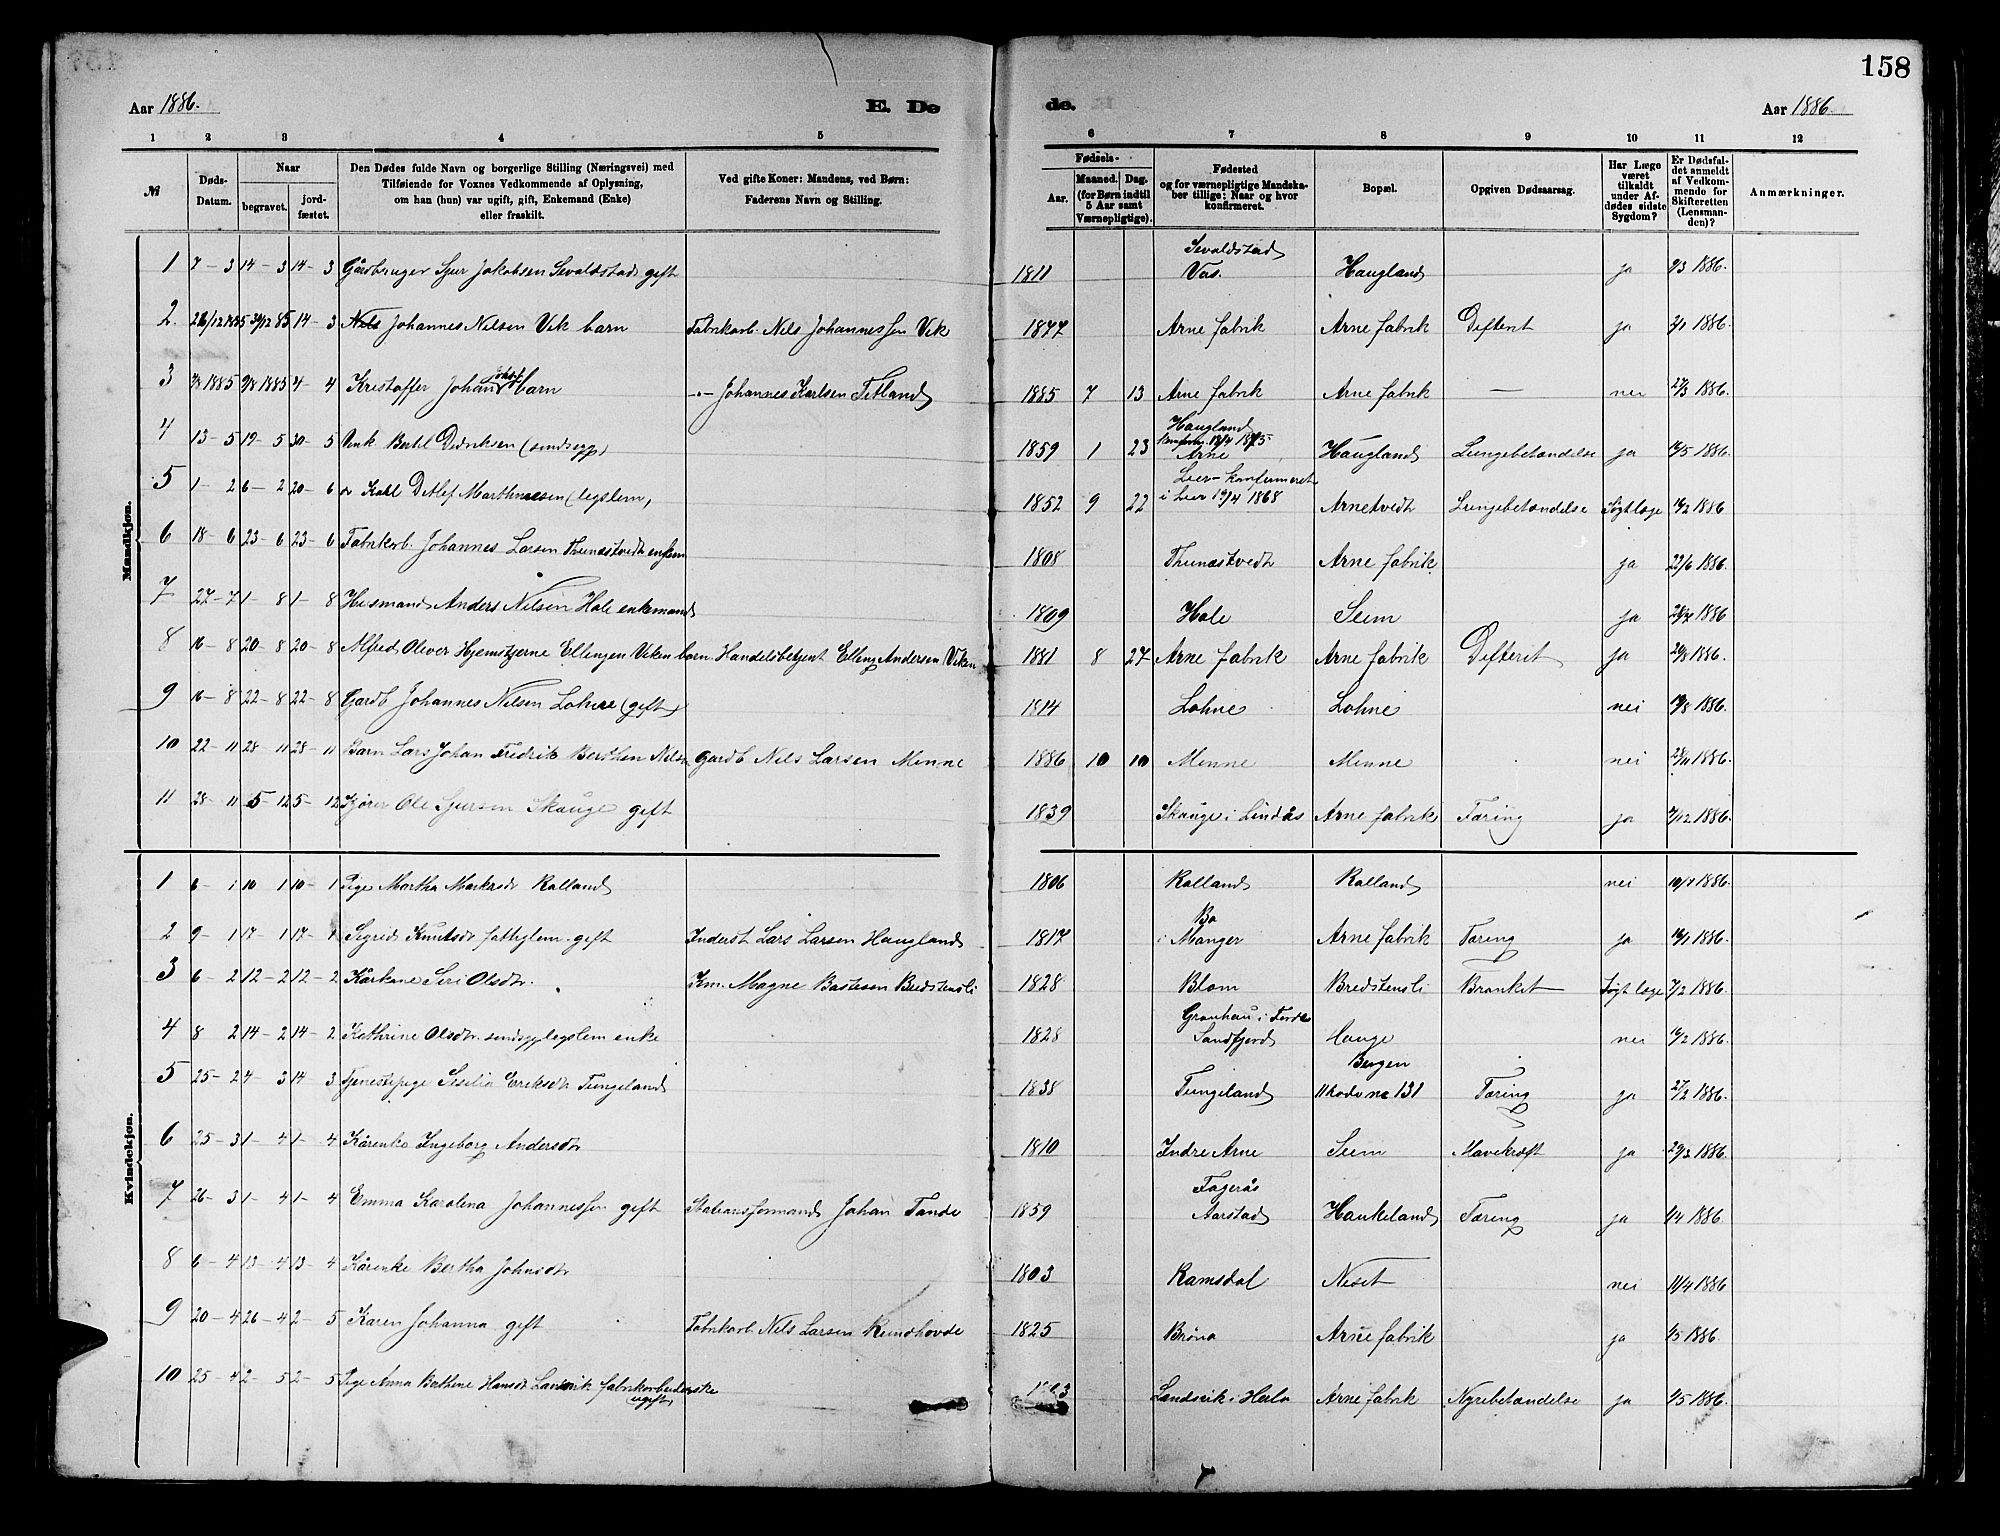 158
Aar 1886.
E. De
de.
Aar 1886.
1 2 3 4 5 6 7 8 9 10 11 12
№
Døds-Datum.
Naar
begravet.
jord-fæstet.
Den Dødes fulde Navn og borgerlige Stilling (Næringsvei) med
Tilføiende for Voxnes Vedkommende af Oplysning,
om han (hun) var ugift, gift, Enkemand (Enke)
eller fraskilt.
Ved gifte Koner: Mandens, ved Børn:
Faderens Navn og Stilling.
Fødsels-
Aar.
Maaned. Dag.
(for Børn indtil
5 Aar samt
Værnepligtige).
Fødested
og for værnepligtige Mandska-
ber tillige: Naar og hvor
konfirmeret.
Bopæl.
Opgiven Dødsaarsag.
Har Læge
været
tilkaldt
under Af-
dødes sidste
Sygdom?
Er Dødsfal-
det anmeldt
af Vedkom-
mende for
Skifteretten
(Lensman-
den)?
Anmærkninger.
Mandkjøn.
1 7-3 14-3 14-3 Gårdbruger Sjur Jakobsen Sevaldstad gift 1811 Sevaldstad Vos. Haugland ja 9/3 1886.
2. 14-3 Johannes Nilsen Vik barn Fabrikarb. Nils Johannessen Vik 1877 Arne fabrik Arne fabrik Difterit ja 2/1 1886.
3 9/8 1885 4-4 Kristoffer Johan barn -"- Johannes Karlsen Tetland 1885 7 13 Arne fabrik Arne fabrik — nei 27/3 1886.
4 13-5 19-5 30-5 Bertil Didriksen (sindssyg) 1859 1 23 Haugland Arne Haugland Lungebetændelse ja 1886.
5 1-2 6-2 20-6 Ditlef Marthinesen (legslem, 1852 9 22 Lier konfirmeret i Lier 1868 Arnetvedt Lungebetændelse Søgt læge 16/2 1886
6 18-6 23-6 23-6 Fabrikarb. Johannes Larsen Thunestvedt enkem 1808 Thunestvedt Arne fabrik ja 22/6 1886.
7 27-7 1-8 1-8 Husmand Anders Nilsen Hole enkemand 1809 Hole Seim ja 1886
8 16-8 20-8 20-8 Alfred Oliver Hjemstjerne Ellingen Viken barn Handelsbetjent Elling Andersen Viken 1881 8 27 Arne fabrik Arne fabrik Difterit ja 20/8 1886.
9 16-8 22-8 22-8 Gardb Johannes Nilsen Lohne (gift) 1814 Lohne Lohne nei 19/8 1886.
10 22-11 28-11 28-11 Barn Lars Johan Fredrik Berthen Nilsen Gardb Nils Larsen Minne 1886 10 10 Minne Minne nei 28/11 1886.
11 28-11 5-12 5-12 Ole Sjursen Skauge gift 1839 Skauge i Lindås Arne fabrik Tæring ja 2/12 1886.
Kvindekjøn.
1 6-1 10-1 10-1 Pige Martha Marksdr Kalland 1806 Kalland Kalland nei 1886.
2 9-1 17-1 17-1 Sigrid Knutsdr fattiglem gift Inderst Lars Larsen Haugland 1817 Bø i Manger Arne fabrik Tæring ja 16/1 1886.
3 6-2 12-2 12-2 Kårkone Siri Olsdtr. Km. Magne Bastesen Bredstensli 1828 Blom Bredstensli Bronket Søgt læge 7/2 1886.
4 8 2 14-2 14-2 Kathrine Olsdtr. sindssyg legslem enke 1828 i Førde Sandfjord Hauge nei 16/2 1886.
5 25-2 4-3 14 3 Tjenestepige Sesilia Eriksdtr Tungeland 1838 Tungeland Bergen 11 Rode no 131 Tæring ja 27/2 1886.
6 25-3 1-4 1-4 Kårenke Ingeborg Andersdtr 1810 Indre Arne Seim Mavekræft ja 29/3 1886.
7 26-3 1-4 1-4 Emma Karolena Johannessen gift Stationsformand Johan Tande 1859 Fagerås Aarstad Haukeland Tæring ja 1/4 1886.
8 6-4 13-4 13-4 Kårenke Bertha Johnsdtr 1803 Ramsdal Neset nei 11/4 1886
9 20-4 26-4 2-5 Karen Johanna gift Fabrikarb Nils Larsen Rundhovde 1825 Brøna Arne fabrik ja 1/5 1886.
10 25-4 2-5 2-5 Pige Anna Bethine Hansdr Landsvik fabrikarbeiderske ugift Landsvik i Herlø Arne fabrik Nyrebetændelse ja 1/5 1886.